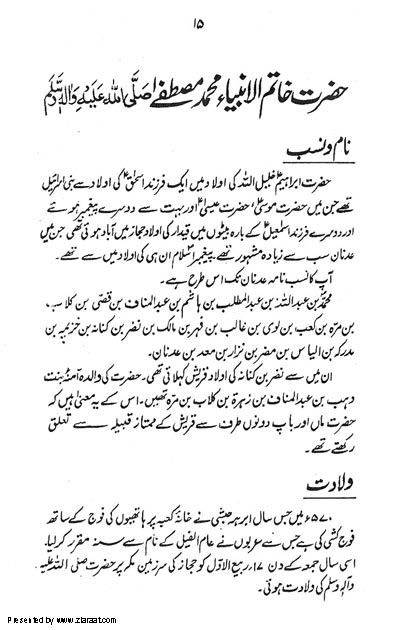 ۱۵
حضرت خاتم الانبیاء محمد مصطفےٰ صَلَّی اللہُ عَلَیْہِ وَاٰلِہٖ وَسَلَّم
نام ونسب
حضرت ابراہیمؑ خلیل اللہ کی اولاد میں ایک فرزند اسحٰقؑ کی اولاد سے بنی اسرائیل
تھے جن میں حضرت موسیٰؑ، حضرت عیسیٰؑ اور بہت سے دوسرے پیغمبر ہوئے
اور دوسرے فرزند اسمٰعیلؑ کے بارہ بیٹوں میں قیدار کی اولاد حجاز میں آباد ہوئی تھی جن میں
عدنان سب سے زیادہ مشہور تھے۔ پیغمبر اسلام ان ہی کی اولاد میں سے تھے۔
آپ کا نسب نامہ عدنان تک اس طرح ہے۔
محمدؐ بن عبداللہؑ بن عبدالمطلب بن ہاشم بن عبدالمناف بن قصٰی بن کلاب،
بن مرّہ بن کعب بن لوی بن غالب بن فہر بن مالک بن نضر بن کنانہ بن خزیمہ بن
مدرکہ بن الیاس بن مضر بن نزار بن معد بن عدنان۔
ان میں سے نضر بن کنانہ کی اولاد قریش کہلاتی تھی۔ حضرت کی والدہ آمنہؑ بنت
وہب بن عبدالمناف بن زہرۃ بن کلاب بن مرّہ تھیں۔ اس کے یہ معنیٰ ہیں کہ
حضرت ماں اور باپ دونوں طرف سے قریش کے ممتاز قبیلہ سے تعلق
رکھتے تھے۔
ولادت
۵۷۰ء میں جس سال ابرہہ حبشی نے خانۂ کعبہ پر ہاتھیوں کی فوج کے ساتھ
فوج کشی کی ہے جس سے عربوں نے عام الفیل کے نام سے سنہ مقرر کر لیا۔
اسی سال جمعہ کے دن ۱۷ ربیع الاوّل کو حجاز کی سرزمین مکہ پر حضرت صلی اللہ علیہ
وآلہٖ وسلم کی ولادت ہوئی۔
Presented by www.ziaraat.com